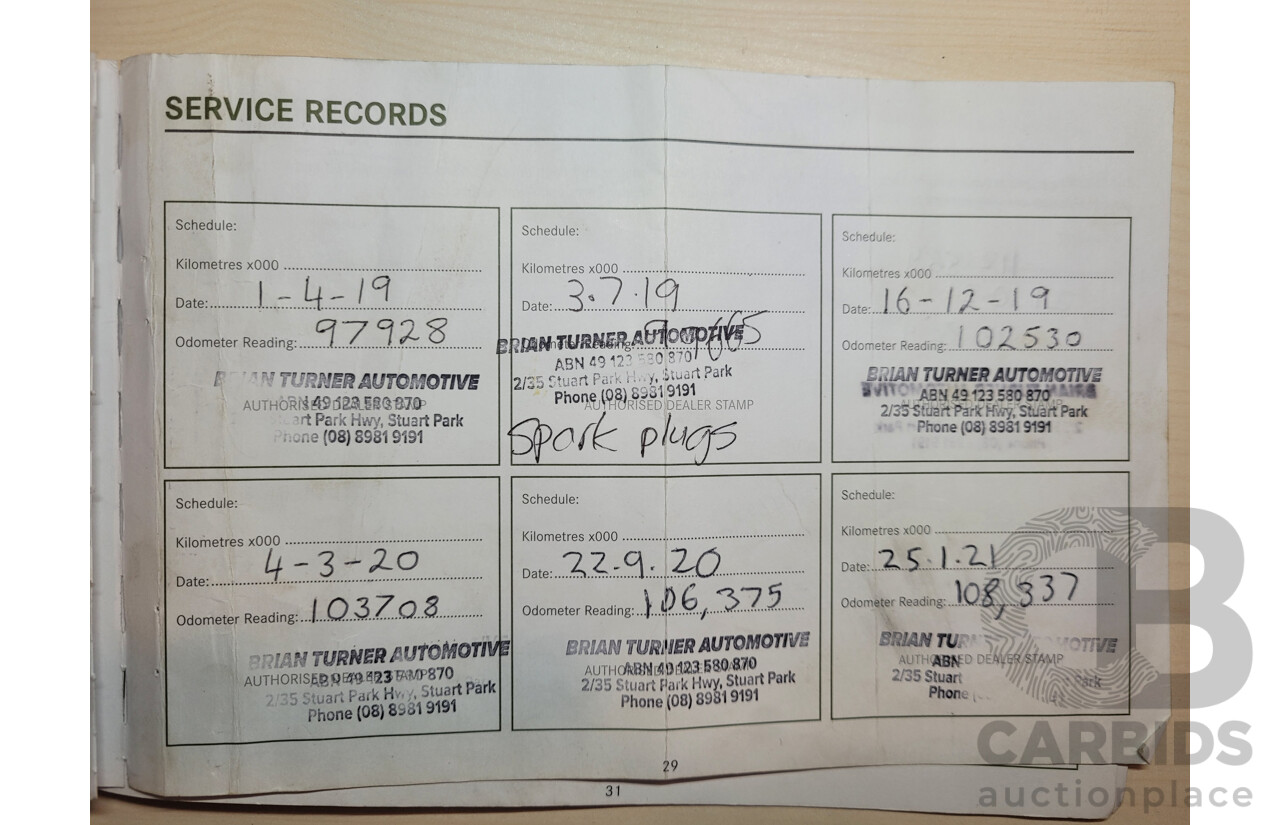 SERVICE RECORDS
Schedule:
Kilometres x000
Date: 1-4-19
Odometer Reading: 97928
BRIAN TURNER AUTOMOTIVE
ABN 49 123 580 870
AUTHORISED DEALER STAMP
Stuart Park Hwy, Stuart Park
Phone (08) 8981 9191
Schedule:
Kilometres x000
Date: 3.7.19
Odometer Reading:
BRIAN TURNER AUTOMOTIVE
ABN 49 123 580 870
2/35 Stuart Park Hwy, Stuart Park
Phone (08) 8981 9191
AUTHORISED DEALER STAMP
Spark plugs
Schedule:
Kilometres x000
Date: 16-12-19
Odometer Reading: 102530
BRIAN TURNER AUTOMOTIVE
ABN 49 123 580 870
2/35 Stuart Park Hwy, Stuart Park
Phone (08) 8981 9191
Schedule:
Kilometres x000
Date: 4-3-20
Odometer Reading: 103708
BRIAN TURNER AUTOMOTIVE
ABN 49 123 580 870
AUTHORISED DEALER STAMP
2/35 Stuart Park Hwy, Stuart Park
Phone (08) 8981 9191
Schedule:
Kilometres x000
Date: 22.9.20
Odometer Reading: 106,375
BRIAN TURNER AUTOMOTIVE
ABN 49 123 580 870
2/35 Stuart Park Hwy, Stuart Park
Phone (08) 8981 9191
Schedule:
Kilometres x000
Date: 25.1.21
Odometer Reading: 108,337
BRIAN TURNER AUTOMOTIVE
AUTHORISED DEALER STAMP
ABN
2/35 Stuart Park
Phone
29
31
CARBIDS
auctionplace